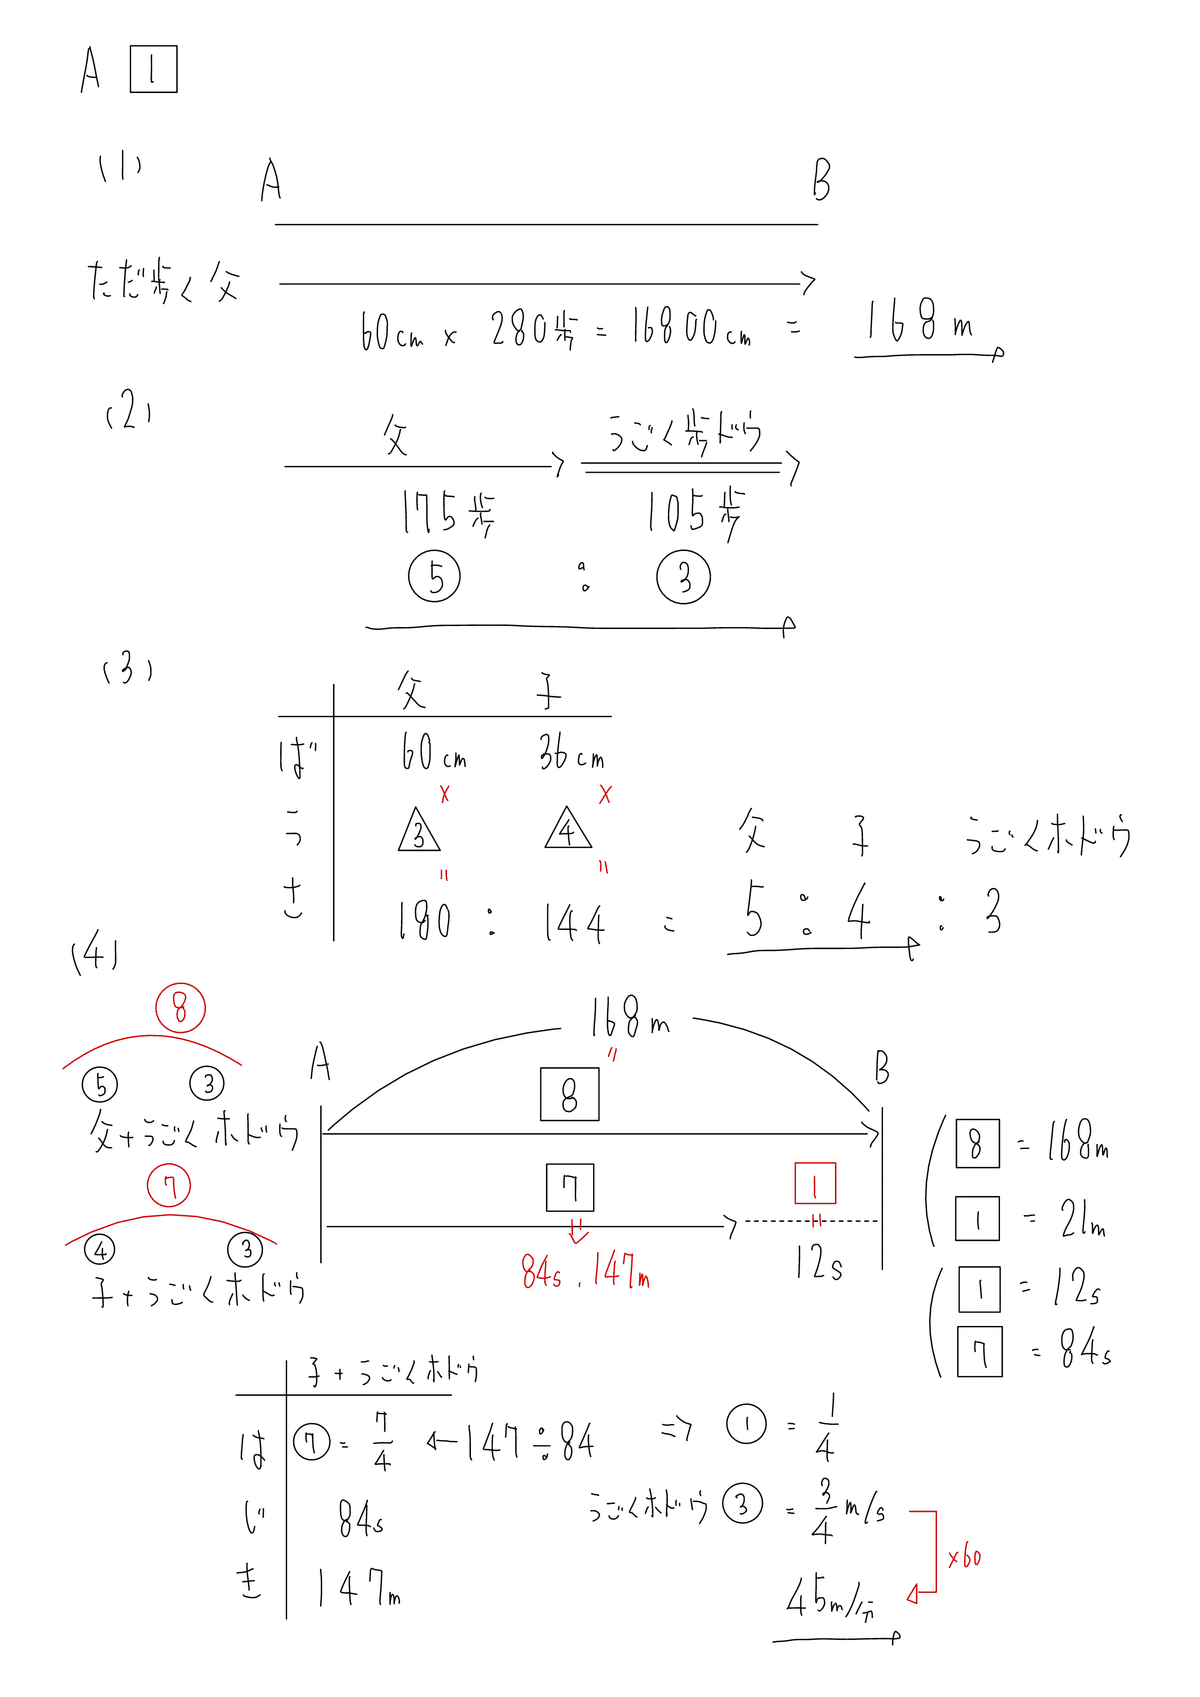 A 1
(1)
A B
ただ歩く父
60cm × 280歩 = 16800cm = 168m
(2)
父 うごく歩ドウ
175歩 105歩
⑤ : ③
(3)
父 子
ば 60cm 36cm
× ×
う 3 4
父 子 うごくホドウ
" "
さ 180 : 144 = 5 : 4 : 3
(4)
⑧
168m
"
A B
⑤ ③
8
父+うごくホドウ
8 = 168m
⑦
7 1
1 = 21m
④ ③
子+うごくホドウ
84s . 147m
12s
1 = 12s
7 = 84s
子+うごくホドウ
は ⑦ = 7/4 ← 147÷84 ⇒ ① = 1/4
じ 84s
うごくホドウ ③ = 3/4 m/s
×60
き 147m
45m/分